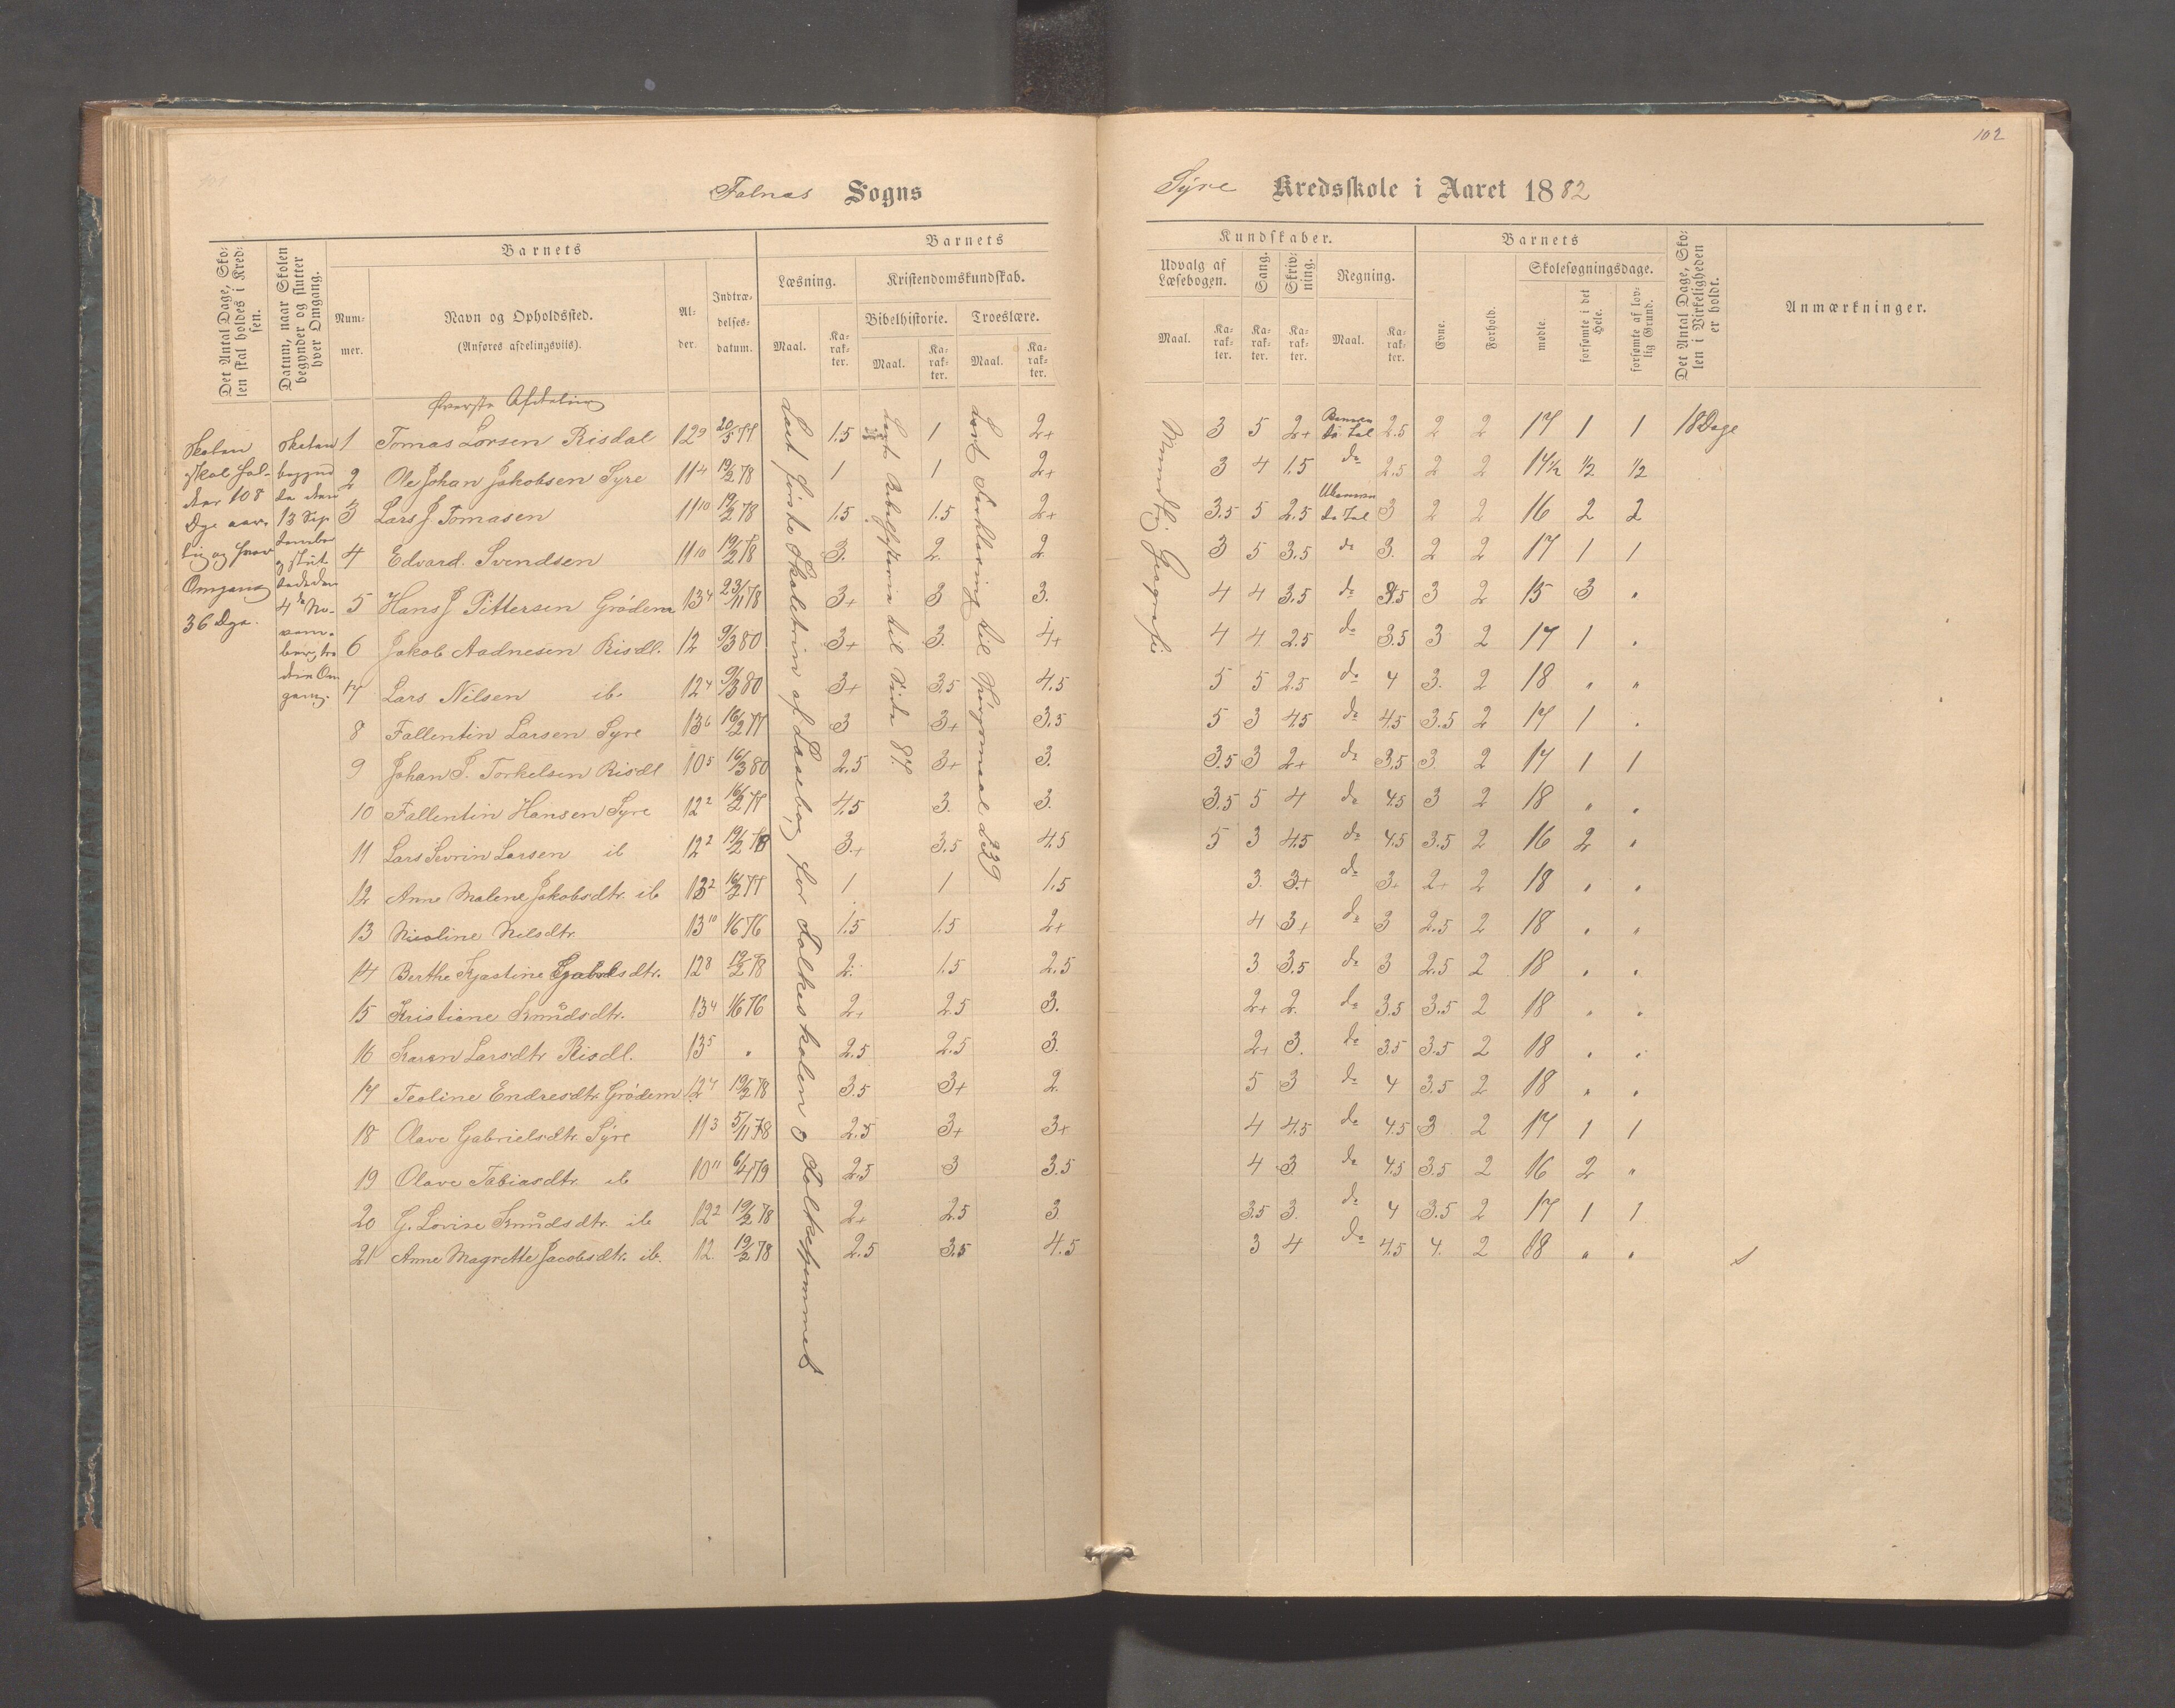 102
Falnæs Sogns
Syre Kredsskole i Aaret 1882
Det Antal Dage, Skolen skal holdes i Kredsen.
Datum, naar Skolen begynder og slutter hver Omgang.
Barnets
Nummer.
Navn og Opholdssted.
(Anføres afdelingsviis).
Alder.
Indtrædelsesdatum.
Barnets
Læsning.
Maal.
Karakter.
Kristendomskundskab.
Bibelhistorie.
Maal.
Karakter.
Troeslære.
Maal.
Karakter.
Kundskaber.
Udvalg af Læsebogen.
Maal.
Karakter.
Sang.
Karakter.
Skrivning.
Karakter.
Regning.
Maal.
Karakter.
Barnets
Evne.
Forhold.
Skolesøgningsdage.
mødte.
forsømte i det Hele.
forsømte af lovlig Grund.
Det Antal Dage, Skolen i Virkeligheden er holdt.
Anmærkninger.
Øverste Afdeling
Skolen skal hol- des 108 Dge aar- lig og hver Omgang 36 Dge.
Skolen begynd te den 13 Sep tember og slut tede den 4de No- vem- ber
Læst første Skoletrin af Læsebog for Folkeskolen o Folkehjemmet
Læst Bibelhistorie til Side 87
Læst Forklaring til Spørgsmaal 239
Mundtlig Geografie
1 Tomas Larsen Risdal 12 9 20/5 77 1.5 1 2+ 3 5 2+ 2.5 2 2 17 1 1 18 Dage
2 Ole Johan Jakobsen Syre 11 4 19/2 78 1 1 2+ 3 4 1.5 do 2.5 2 2 17½ ½ ½
3 Lars J Tomasen 11 10 19/2 78 1.5 1.5 2+ 3.5 5 2.5 3 2 2 16 2 2
4 Edvard. Svendsen 11 10 19/2 78 3. 2. 2 3 5 3.5 do 3. 2 2 17 1 1
5 Hans J Pittersen Grødem 13 4 23/11 78 3+ 3 3. 4 4 3.5 do 3.5 3 2 15 3 "
6 Jakob Aadnesen Risdl. 12 9/3 80 3+ 3. 4+ 4 4 2.5 do 3.5 3 2 17 1 "
7 Lars Nilsen ib. 12 4 9/3 80 3+ 3.5 4.5 5 5 2.5 do 4 3. 2 18 " "
8 Fallentin Larsen Syre 13 6 16/2 77 3 3+ 3.5 5 3 4.5 do 4.5 3.5 2 17 1 "
9 Johan S. Torkelsen Risdl 10 5 16/3 80 2.5 3+ 3. 3.5 3 2+ do 3.5 3 2 17 1 1
10 Fallentin Hansen Syre 12 2 16/2 77 4.5 3. 3. 3.5 5 4 do 4.5 3 2 18 " "
11 Lars Sevrin Larsen ib 12 2 19/2 78 3+ 3.5 4.5 5 3 4.5 do 4.5 3.5 2 16 2 "
12 Anne Malene Jakobsdtr. ib 13 2 16/2 77 1 1 1.5 3. 3+ do 3. 2+ 2 18 " "
13 Nicoline Nilsdtr. 13 10 16 76 1.5 1.5 2+ 4 3+ do 3 2.5 2 18 " "
14 Berthe Kjastine Gabrelsdtr. 12 8 19/2 78 2. 1.5 2.5 3 3.5 do 3 2.5 2 18 " "
15 Kristiane Knudsdtr. 13 4 16 76 2+ 2.5 3. 2+ 2. do 3.5 3.5 2 18 " "
16 Karen Larsdtr Risdl. 13 5 " 2.5 2.5 3. 2+ 3. do 3.5 3.5 2 18 " "
17 Teoline Endresdtr. Grødem 12 7 19/2 78 3.5 3+ 2. 5 3 do 4 3.5 2 18 " "
18 Olave Gabrielsdtr. Syre 11 3 5/11 78 2.5 3+ 3+ 4 4.5 do 4.5 3 2 17 1 1
19 Olave Tobiasdtr. ib 10 11 6/4 79 2.5 3 3.5 4 3 do 4.5 3.5 2 16 2 "
20 G. Lovise Knudsdtr. ib 12 2 19/2 78 2+ 2.5 3 3.5 3. do 4 3.5 2 17 1 1
21 Anne Magrette Jacobsdtr. ib. 12 19/2 78 2.5 3.5 4.5 3 4 do 4.5 4. 2 18 " "